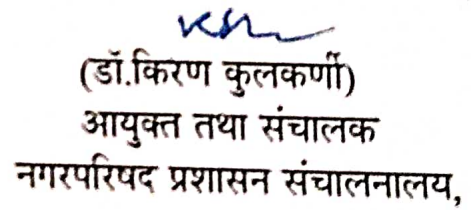 (डॉ.किरण कुलकर्णी)
आयुक्त तथा संचालक
नगरपरिषद प्रशासन संचालनालय,